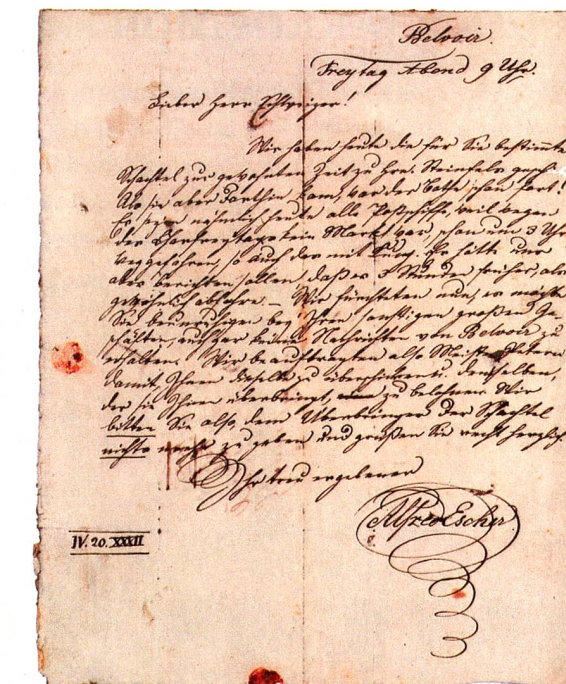 Belvoir.
Freytag Abend 9 Uhr.
Lieber Herr Schweizer!
Wir haben heute die für Sie bestimmte
Schachtel zur gewohnten Zeit zu Hrn. Steinfels
Als sie aber dorthin kam, war der Bothe schon fort!
Es seyen nähmlich heute alle Postschiffe, weil wegen
des Charfreytags kein Markt war, schon um 3 Uhr
weggefahren, so auch der mit Er hätte uns
aber berichten sollen, daß er 3 Stunden früher als
gewöhnlich abfahre. – Wir fürchteten nun, es möchte
Sie beunruhigen bey Ihren sonstigen großen Ge-
schäften, auch gar keine Nachrichten von Belvoir zu
erhalten. Wir beauftragten also Meister
damit Ihnen dieselbe zu überschicken u. denselben,
der sie Ihnen überbringt, zu belohnen. Wir
bitten Sie also, dem Überbringer der Schachtel
nichts mehr zu geben und grüßen Sie recht herzlich
Ihr treu ergebener
Alfred Escher
IV. 20. XXXII